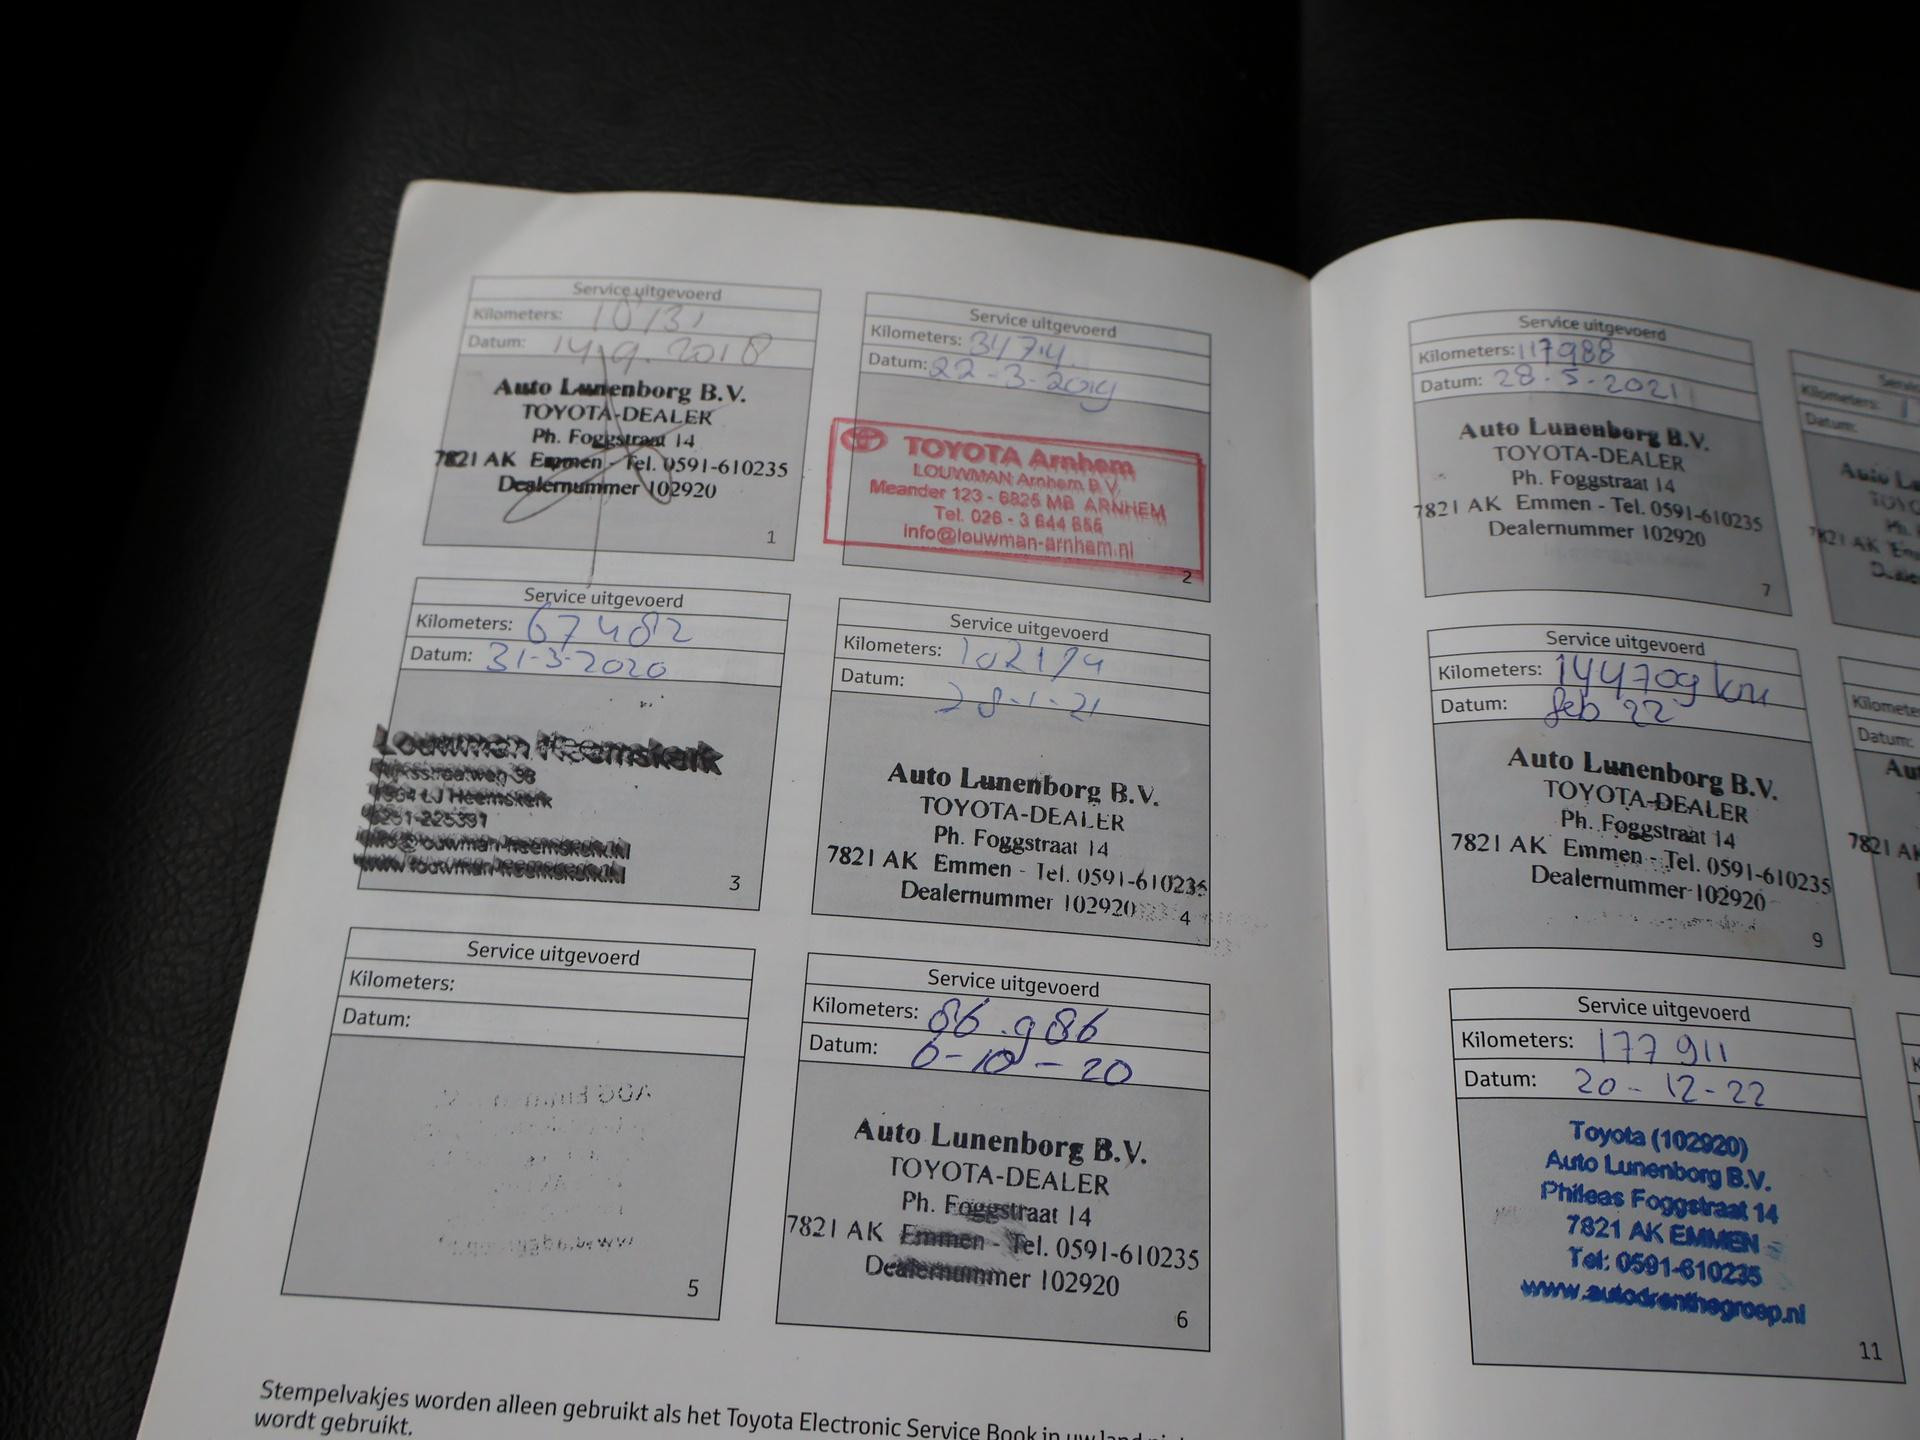 Service uitgevoerd
Kilometers:
Datum: 14.9.2018
Auto Lunenborg B.V.
TOYOTA-DEALER
Ph. Foggstraat 14
7821 AK Emmen - Tel. 0591-610235
Dealernummer 102920
1
Service uitgevoerd
Kilometers:
Datum: 22-3-2019
TOYOTA Arnhem
LOUWMAN Arnhem B.V.
Meander 123 - 6825 MB ARNHEM
Tel. 026 - 3 644 655
info@louwman-arnhem.nl
2
Service uitgevoerd
Kilometers: 67482
Datum: 31-3-2020
Louwman Heemskerk
Rijksstraatweg
1964 LJ Heemskerk
0251-225391
info@louwman-heemskerk.nl
www.louwman-heemskerk.nl
3
Service uitgevoerd
Kilometers:
Datum: 28-1-21
Auto Lunenborg B.V.
TOYOTA-DEALER
Ph. Foggstraat 14
7821 AK Emmen - Tel. 0591-610235
Dealernummer 102920
4
Service uitgevoerd
Kilometers:
Datum:
5
Service uitgevoerd
Kilometers: 86.986
Datum: 6-10-20
Auto Lunenborg B.V.
TOYOTA-DEALER
Ph. Foggstraat 14
7821 AK Emmen - Tel. 0591-610235
Dealernummer 102920
6
Stempelvakjes worden alleen gebruikt als het Toyota Electronic Service Book in uw land
wordt gebruikt.
Service uitgevoerd
Kilometers: 117988
Datum: 28-5-2021
Auto Lunenborg B.V.
TOYOTA-DEALER
Ph. Foggstraat 14
7821 AK Emmen - Tel. 0591-610235
Dealernummer 102920
7
Kilometers:
Datum:
Service uitgevoerd
Kilometers: 144709 km
Datum: feb 22
Auto Lunenborg B.V.
TOYOTA-DEALER
Ph. Foggstraat 14
7821 AK Emmen - Tel. 0591-610235
Dealernummer 102920
9
Kilometers
Datum:
7821 AK
Service uitgevoerd
Kilometers: 177 911
Datum: 20-12-22
Toyota (102920)
Auto Lunenborg B.V.
Phileas Foggstraat 14
7821 AK EMMEN
Tel: 0591-610235
www.autodrenthegroep.nl
11